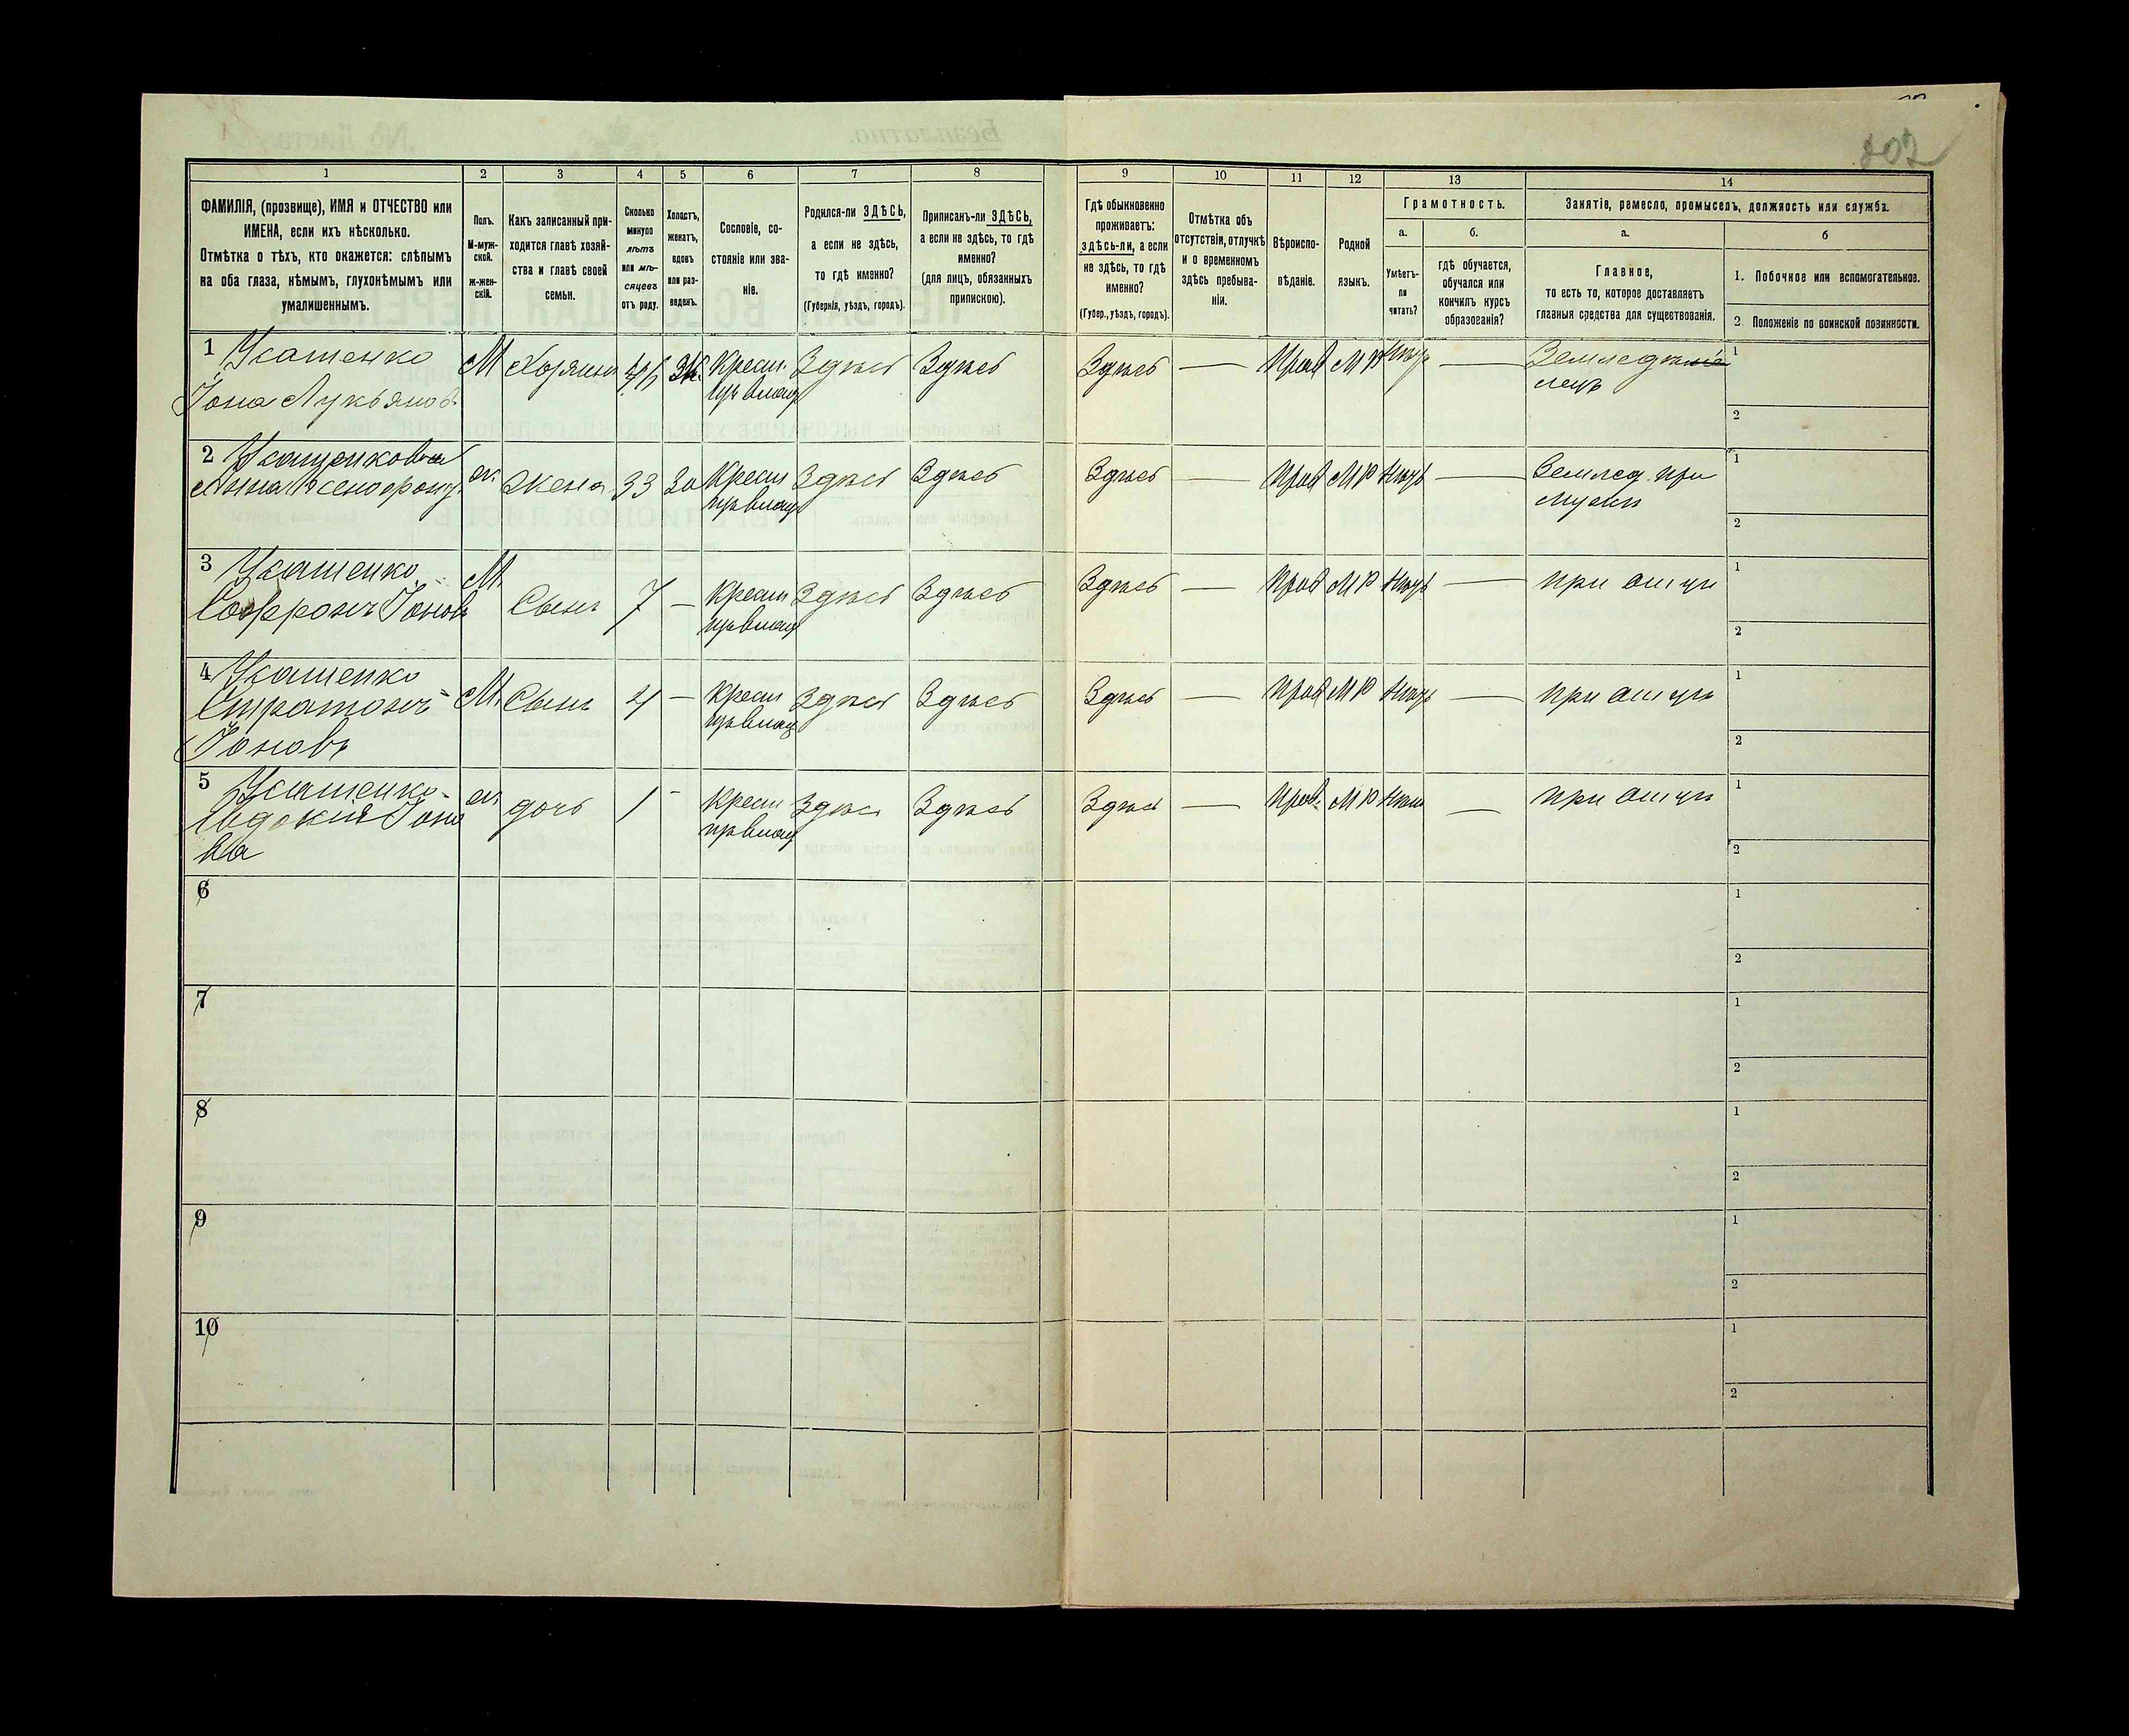 202
1
2
3
4
5
6
7
8
9
10
11
12
13
14
ФАМИЛІЯ, (прозвище), ИМЯ и ОТЧЕСТВО или
ИМЕНА, если ихъ нѣсколько.
Отмѣтка о тѣхъ, кто окажется: слѣпымъ
на оба глаза, нѣмымъ, глухонѣмымъ или
умалишеннымъ.
Полъ.
М-муж-
ской.
ж-жен-
скій.
Какъ записанный при-
ходится главѣ хозяй-
ства и главѣ своей
семьи.
Сколько
минуло
лѣтъ
или мѣ-
сяцевъ
отъ роду.
Холостъ,
женатъ,
вдовъ
или раз-
веденъ.
Сословіе, со-
стояніе или зва-
ніе.
Родился-ли ЗДѢСЬ,
а если не здѣсь,
то гдѣ именно?
(Губернія, уѣздъ, городъ).
Приписанъ-ли ЗДѢСЬ,
а если не здѣсь, то гдѣ
именно?
(для лицъ, обязанныхъ
припискою).
Гдѣ обыкновенно
проживаетъ:
здѣсь-ли, а если
не здѣсь, то гдѣ
именно?
(Губер., уѣздъ, городъ).
Отмѣтка объ
отсутствіи, отлучкѣ
и о временномъ
здѣсь пребыва-
ніи.
Вѣроиспо-
вѣданіе.
Родной
языкъ.
Грамотность.
а.
Умѣетъ-
ли
читать?
б.
гдѣ обучается,
обучался или
кончилъ курсъ
образованія?
Занятіе, ремесло, промыселъ, должность или служба.
а.
Главное,
то есть то, которое доставляетъ
главныя средства для существованія.
б
1. Побочное или вспомогательное.
2 Положеніе по воинской повинности.
1
Іона Лукьяновъ
М Хозяинъ Крест. Здѣсь Здѣсь Здѣсь — Прав М Р Нѣтъ — Земледѣ
лецъ
1
2
2
Анна
ж. Жена 33 За Крест Здѣсь Здѣсь Здѣсь — Прав М Р Нѣтъ — Землед. при
мужи
1
2
3
Софронъ Іоновъ
М Сынъ 7 — Крест Здѣсь Здѣсь Здѣсь — Прав М Р Нѣтъ — при отцѣ
1
2
4
Стратонъ
Іоновъ
М. Сынъ 4 — Крест Здѣсь Здѣсь Здѣсь — Прав М Р Нѣтъ — при отцѣ
1
2
5
Евдокія Іоно
ва
ж дочь 1 - Крест Здѣсь Здѣсь Здѣсь — Прав. М Р Нѣтъ — при отцѣ
1
2
6
1
2
7
1
2
8
1
2
9
1
2
10
1
2